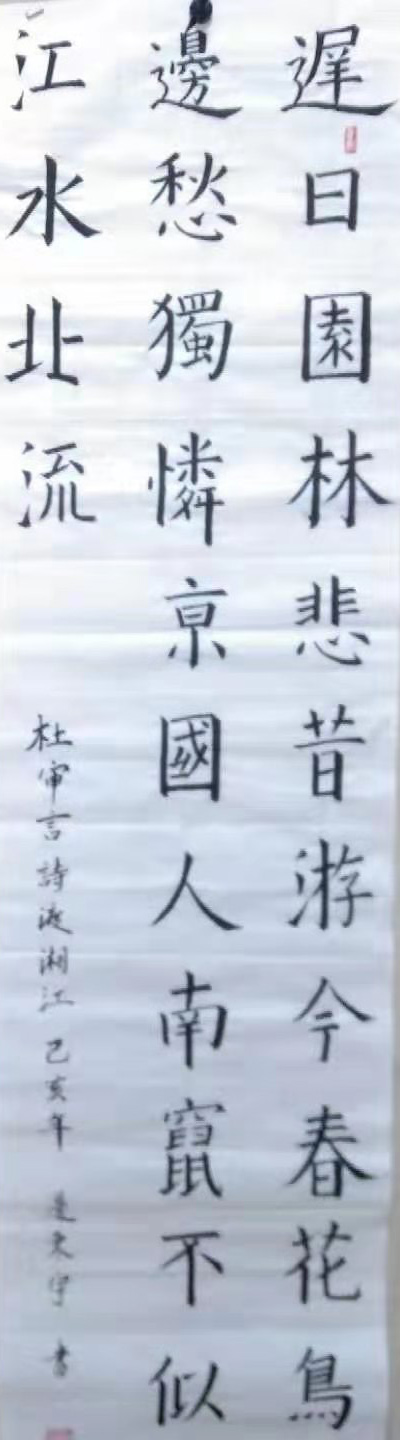 遲日園林悲昔游今春花鳥
邊愁獨憐亰國人南竄不似
江水北流
杜審言詩渡湘江 己亥年 書